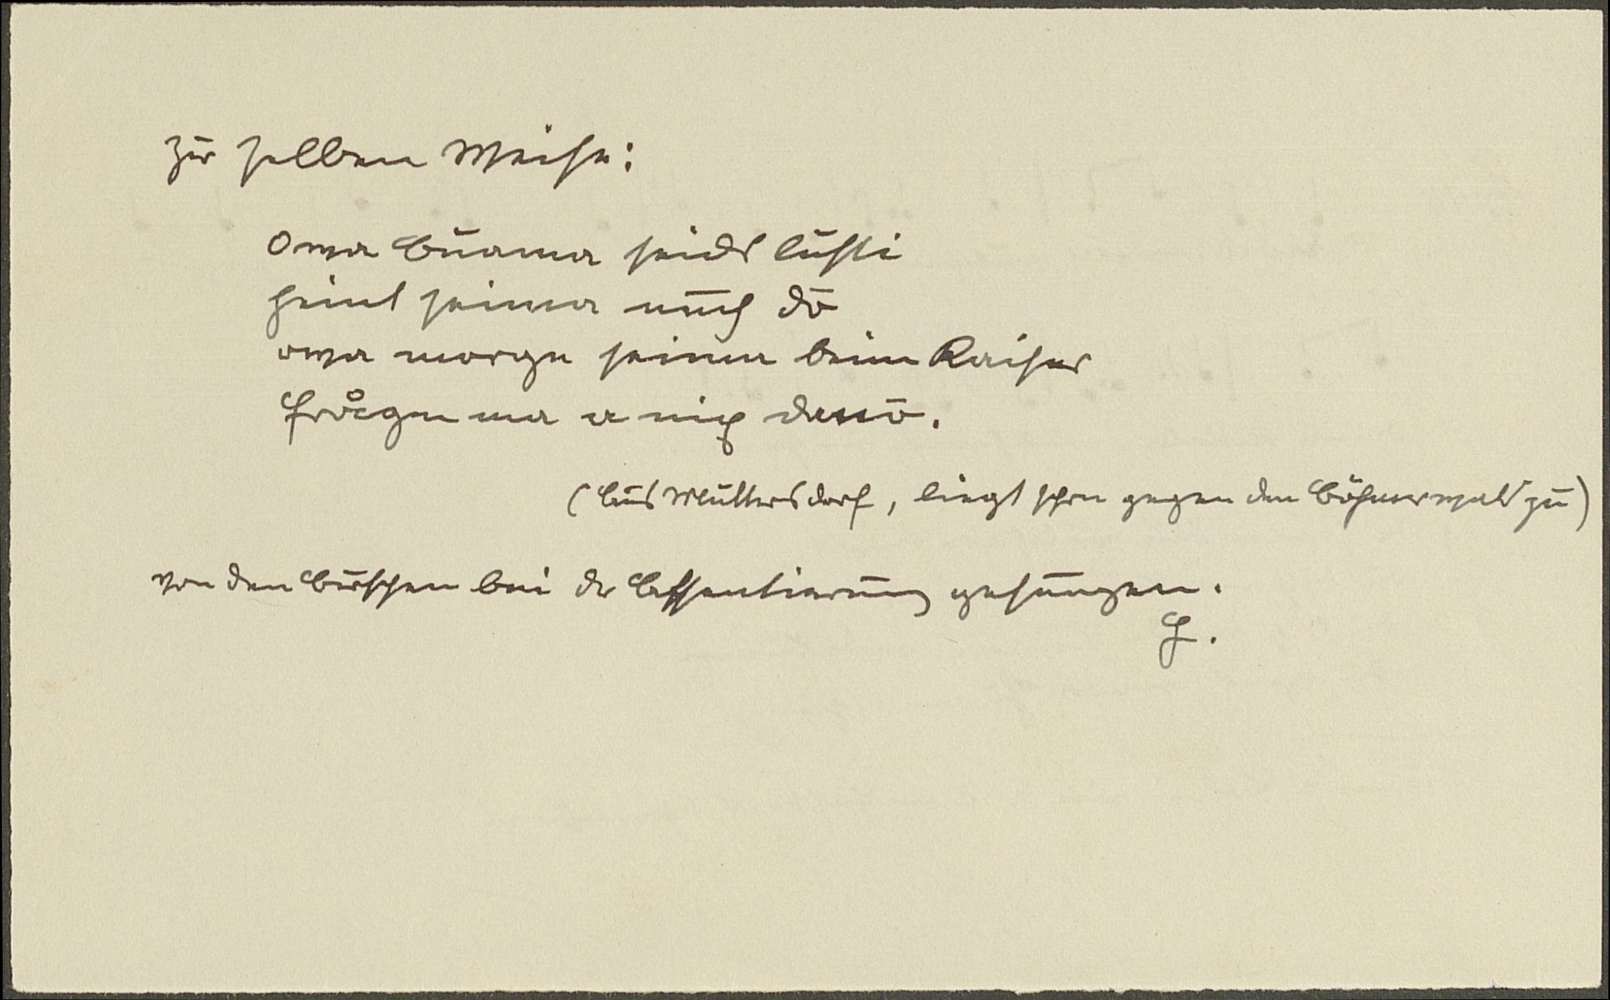 zur selben Weise:
Owa Buama seids lusti
heint seima nuch dō
owa morgn seima beim Kaiser
frågn ma a nix danō.
(Aus Muttersdorf, liegt schon gegen den Böhmerwald zu)
von den Burschen bei der Assentierung gesungen.
H.